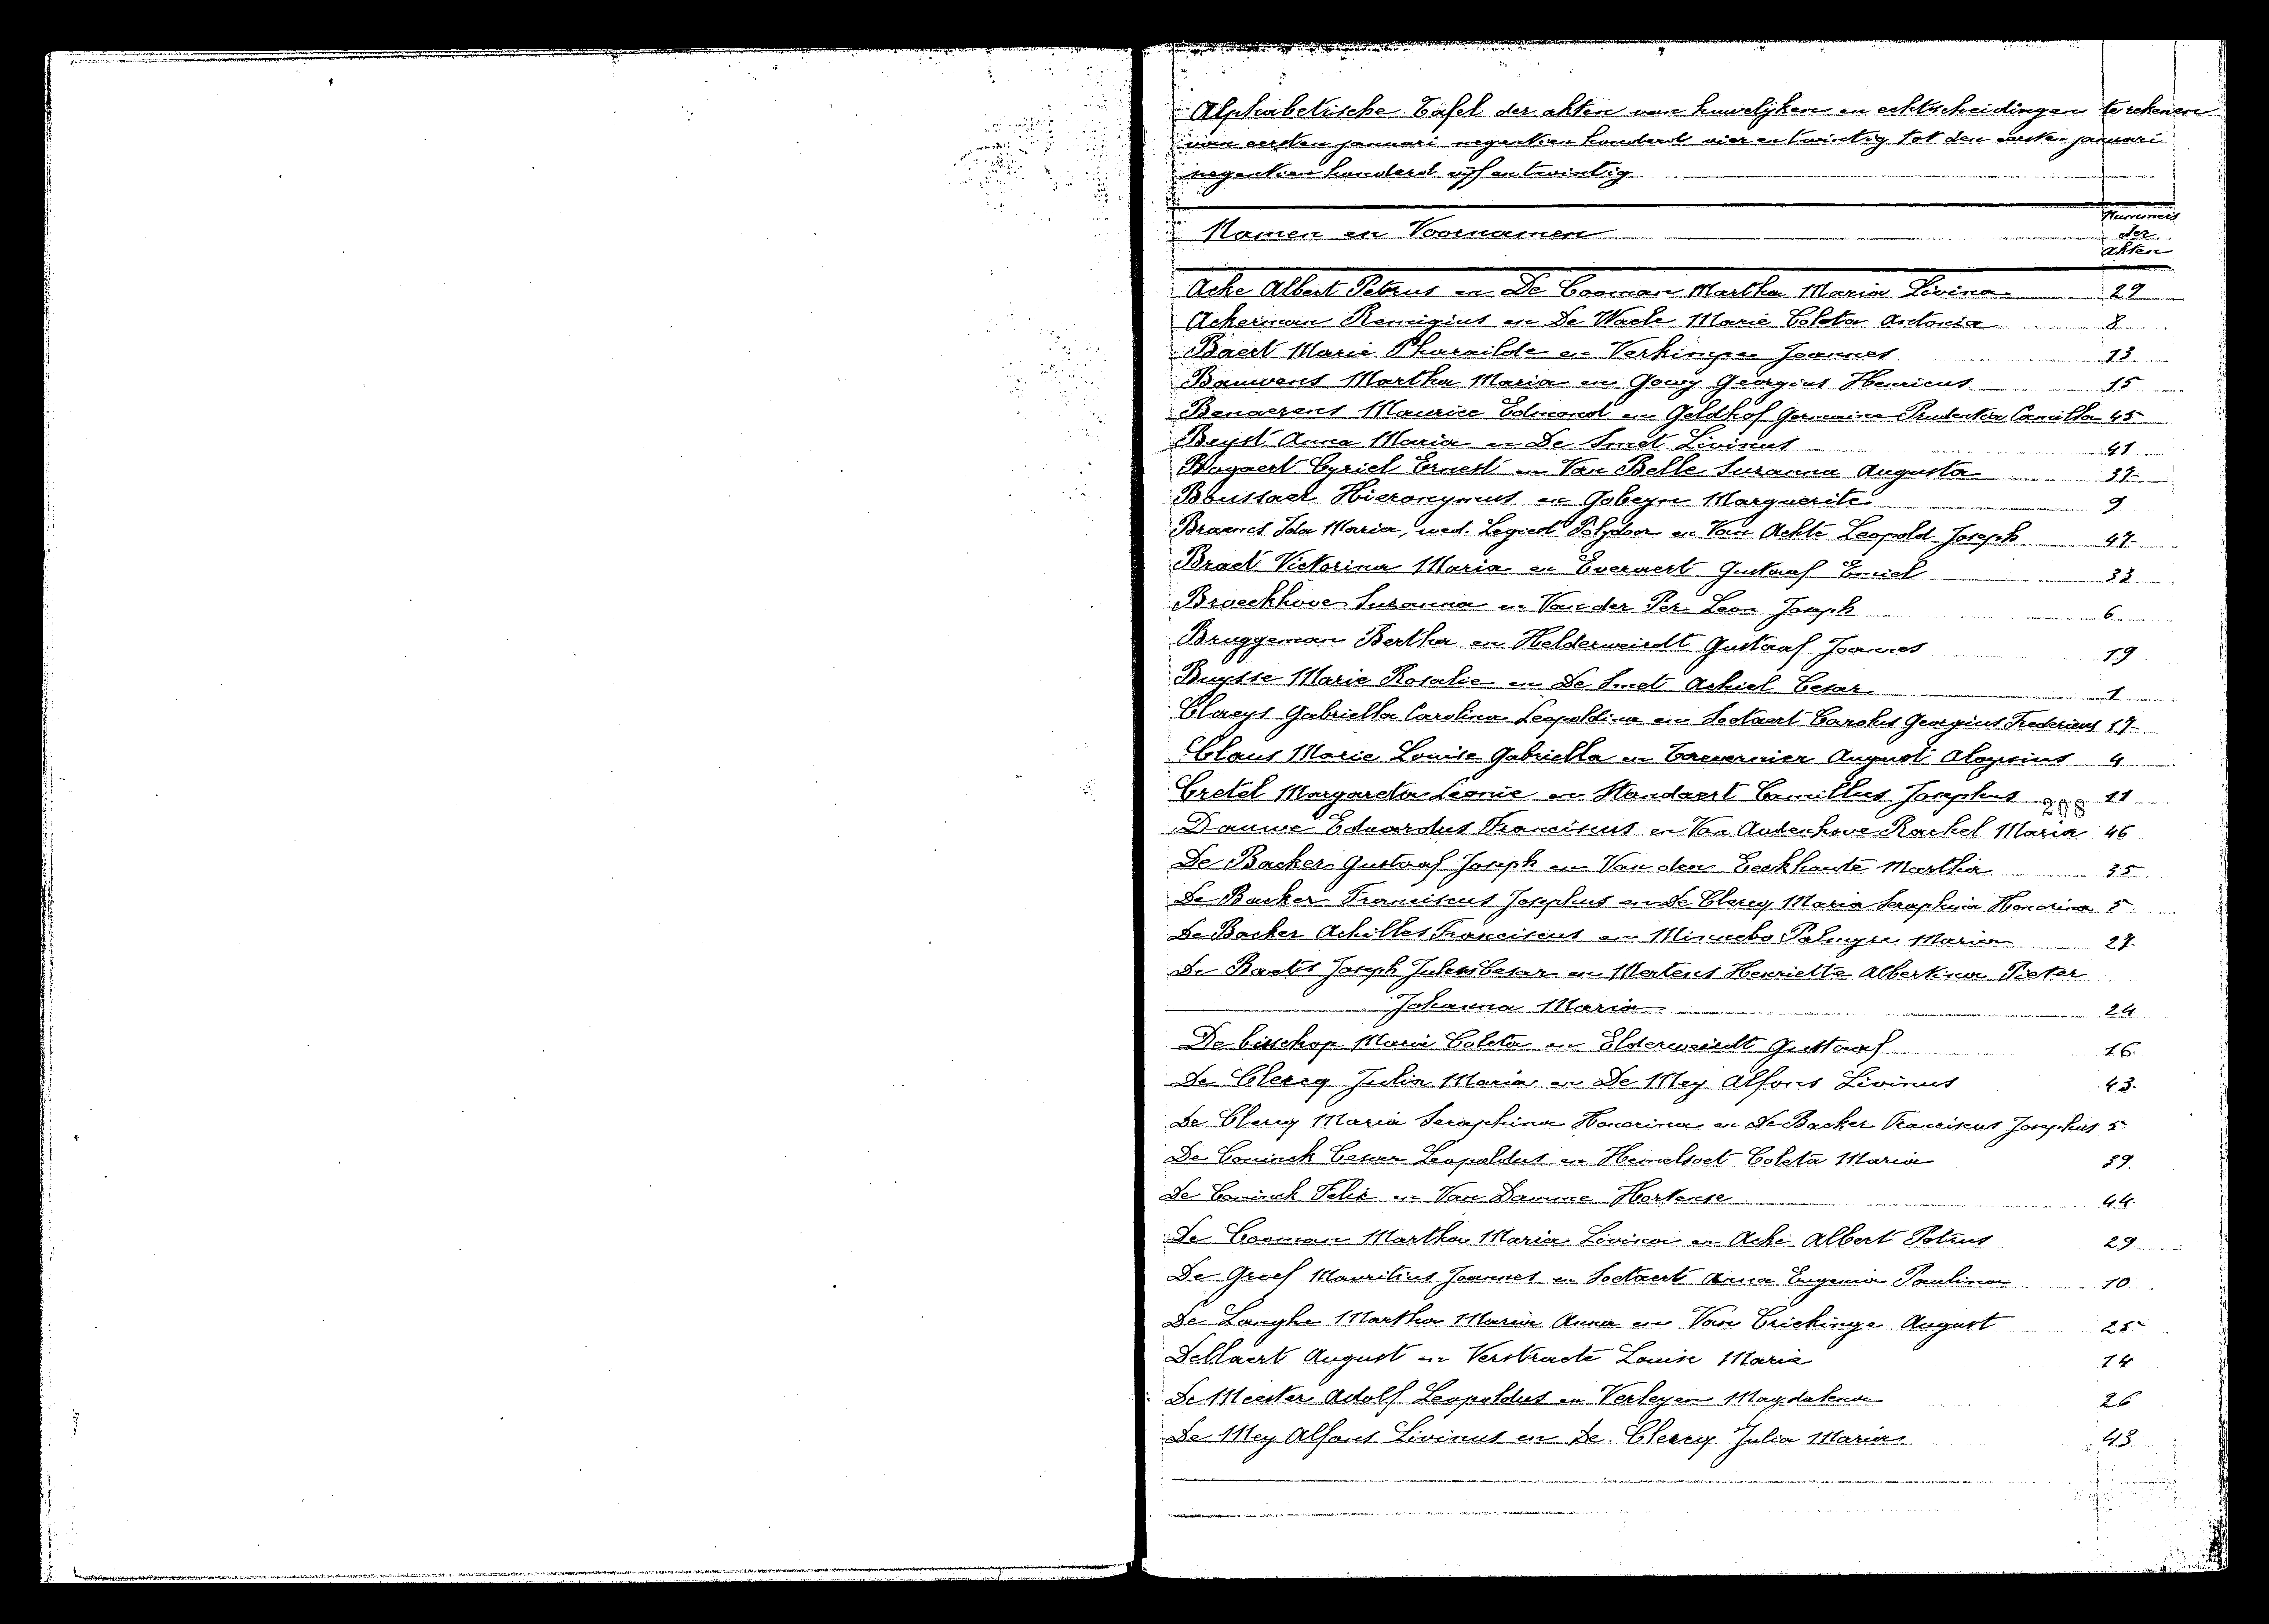 Alphabetische Tafel der akten van huwelijken en echtscheidingen te rekenen
van eersten januari negentien honderd vier en twintig tot den eersten januari
negentien honderd vijf en twintig
Namen en Voornamen
Nummers der akten
Ache Albert Petrus en De Cooman Martha Maria Livina 29
Ackerman Remigius en De Waele Marie Coleta Antonia 8
Baert Marie Pharaïlde en Verkimpe Joannes 13
Bauwens Martha Maria en Gouy Georgius Henricus 15
Benaerens Maurice Edmond en Geldhof Germaine Prudentia Camilla 45
Beyst Anna Maria en De Smet Livinus 41
Bogaert Cyriel Ernest en Van Belle Suzanna Augusta 37
Boussaer Hieronymus en Gobeyn Marguerite 9
Braems Ida Maria, wed. Legiest Polydoor en Van Achte Leopold Joseph 47
Braet Victorina Maria en Everaert Gustaaf Emiel 33
Broeckhove Suzanna en Van der Per Leon Joseph 6
Bruggeman Bertha en Helderweirdt Gustaaf Joannes 19
Buysse Marie Rosalie en De Smet Achiel Cesar 1
Claeys Gabriella Carolina Leopoldina en Soetaert Carolus Georgius Fredericus 17
Claus Marie Louise Gabriella en Taevernier August Aloysius 4
Cretel Margareta Leonie en Standaert Camillus Josephus 11
208
Dauwe Eduardus Franciscus en Van Audenhove Rachel Maria 46
De Backer Gustaaf Joseph en Van den Eeckhaute Martha 35
De Backer Franciscus Josephus en De Clercq Maria Seraphina Honorina 5
De Backer Achilles Franciscus en Minnebo Palmyre Maria 27
De Baets Joseph Jules Cesar en Mertens Henriette Albertina Pieter
Johanna Maria 24
De bisschop Marie Coleta en Elderweirdt Gustaaf 16
De Clercq Julia Maria en De Mey Alfons Livinus 43
De Clercq Maria Seraphina Honorina en De Backer Franciscus Josephus 5
De Coninck Cesar Leopoldus en Hemelsoet Coleta Maria 39
De Coninck Felix en Van Damme Hortense 44
De Cooman Martha Maria Livina en Ache Albert Petrus 29
De Graef Mauritius Joannes en Soetaert Anna Eugenia Paulina 10
De Langhe Martha Maria Anna en Van Crickinge August 25
Dellaert August en Verstraete Louise Marie 14
De Meester Adolf Leopoldus en Verleyen Magdalena 26
De Mey Alfons Livinus en De Clercq Julia Maria 43